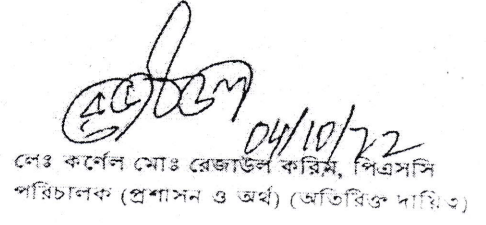 04/10/22
লেঃ কর্ণেল মোঃ রেজাউল করিম, পিএসসি
পরিচালক (প্রশাসন ও অর্থ) (অতিরিক্ত দায়িত্ব)